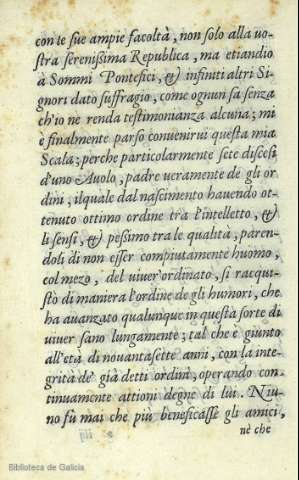 con le sue ampie facoltà, non solo alla uo-
stra serenissima Republica, ma etiandio
à Sommi Pontefici, & infiniti altri Si-
gnori dato suffragio, come ognun sa senza
ch'io ne renda testimonianza alcuna; mi
è finalmente parso conuenirui questa mia
Scala; perche particolarmente sete discesi
d'uno Auolo, padre ueramente de gli or-
dini; ilquale dal nascimento hauendo ot-
tenuto ottimo ordine tra l'intelletto, &
li sensi, & pessimo tra le qualità, paren-
doli di non esser compiutamente huomo,
col mezo, del uiuer ordinato, si racqui-
stò di maniera l'ordine de gli humori, che
ha auanzato qualunque in questa sorte di
uiuer sano lungamente; tal che è giunto
all'età di nouantasette anni, con la inte-
grità de' già detti ordini, operando con-
tinuamente attioni degne di lui. Niu-
no fù mai che più beneficasse gli amici,
nè che
Biblioteca de Galicia